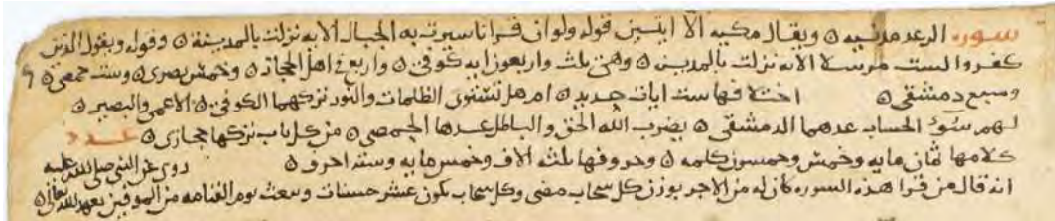 سوره الرعد مدنيه ٥ ويقال مكيه الا ايتين قوله ولو ان قرانا سيرت به الجبال الايه نزلت بالمدينة ٥ وقوله ويقول الذين
كفروا لست مرسلا الايه نزلت بالمدينه ٥ وهي ثلث واربعون ايه كوفي ٥ واربع في اهل الحجاز ٥ وخمس بصرى ٥ وست حمصي ٥
وسبع دمشقى ٥ اختلافها ست ايات جديد ٥ ام هل تستوى الظلمات والنور تركهما الكوفي ٥ الاعمى والبصير ٥
لهم سوء الحساب عدهما الدمشقى ٥ يضرب الله الحق والباطل عدها الحمصي ٥ من كل باب تركها حجازى ٥ عدد
كلامها ثمان مايه وخمس وخمسون كلمه ٥ وحروفها ثلثه الاف وخمس مايه وسته احرف ٥ روى عن النبي صلى الله عليه
انه قال من قرا هذه السوره كان له من الاجر بوزن كل سحاب مضى وكل سحاب يكون عشر حسنات وبعث يوم القيامه من الموفين بعهد الله تعالى ٥